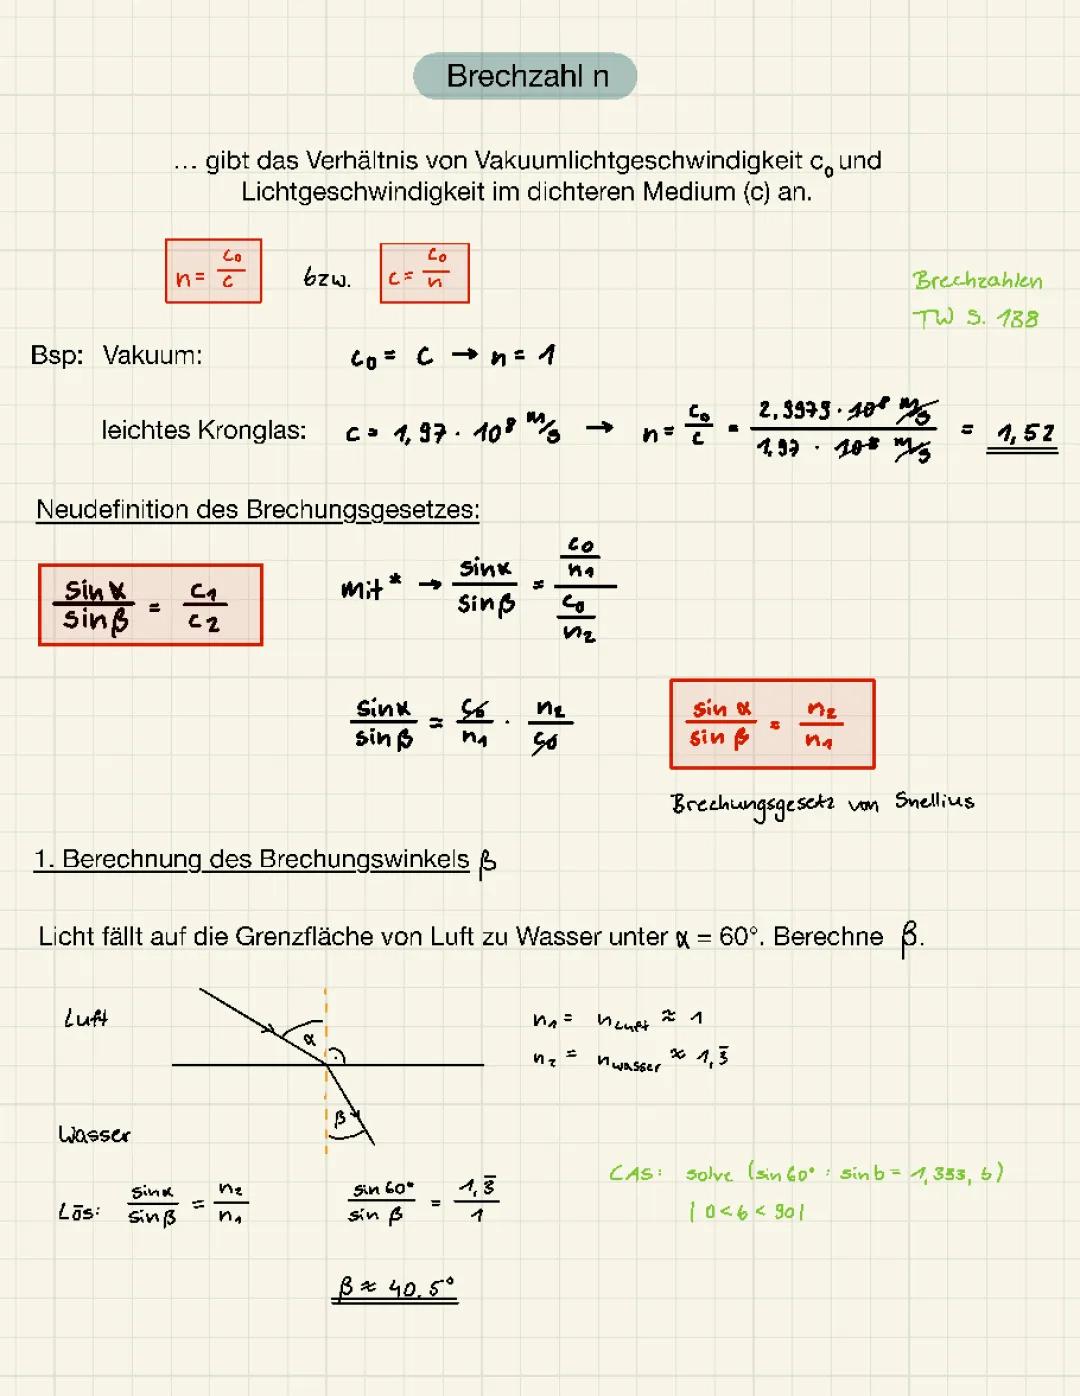 Brechzahl n
... gibt das Verhältnis von Vakuumlichtgeschwindigkeit c₀ und
Lichtgeschwindigkeit im dichteren Medium (c) an.
n = c₀/c bzw. c = c₀/n
Brechzahlen
TW S. 138
Bsp: Vakuum: c₀ = c → n = 1
leichtes Kronglas: c = 1,97 · 10⁸ m/s → n = c₀/c = 2,9979 · 10⁸ m/s / 1,97 · 10⁸ m/s = 1,52
Neudefinition des Brechungsgesetzes:
sin α / sin β = c₁/c₂ mit* → sin α / sin β = (c₀/n₁) / (c₀/n₂)
sin α / sin β = c₀/n₁ · n₂/c₀ sin α / sin β = n₂/n₁
Brechungsgesetz von Snellius
1. Berechnung des Brechungswinkels β
Licht fällt auf die Grenzfläche von Luft zu Wasser unter α = 60°. Berechne β.
Luft
α
n₁ = n Luft ≈ 1
n₂ = n Wasser ≈ 1,3̅
β
Wasser
Lös: sin α / sin β = n₂/n₁ sin 60° / sin β = 1,3̅ / 1
CAS: solve (sin 60° : sin b = 1,333, b)
| 0 < b < 90 |
β ≈ 40.5°